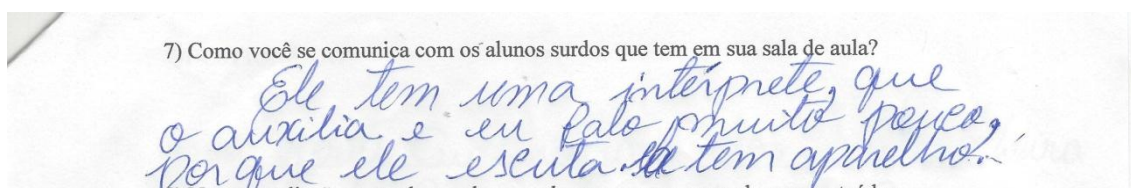 7) Como você se comunica com os alunos surdos que tem em sua sala de aula?
Ele tem uma intérprete, que
o auxilia e eu falo muito pouco,
porque ele escuta tem aparelho.